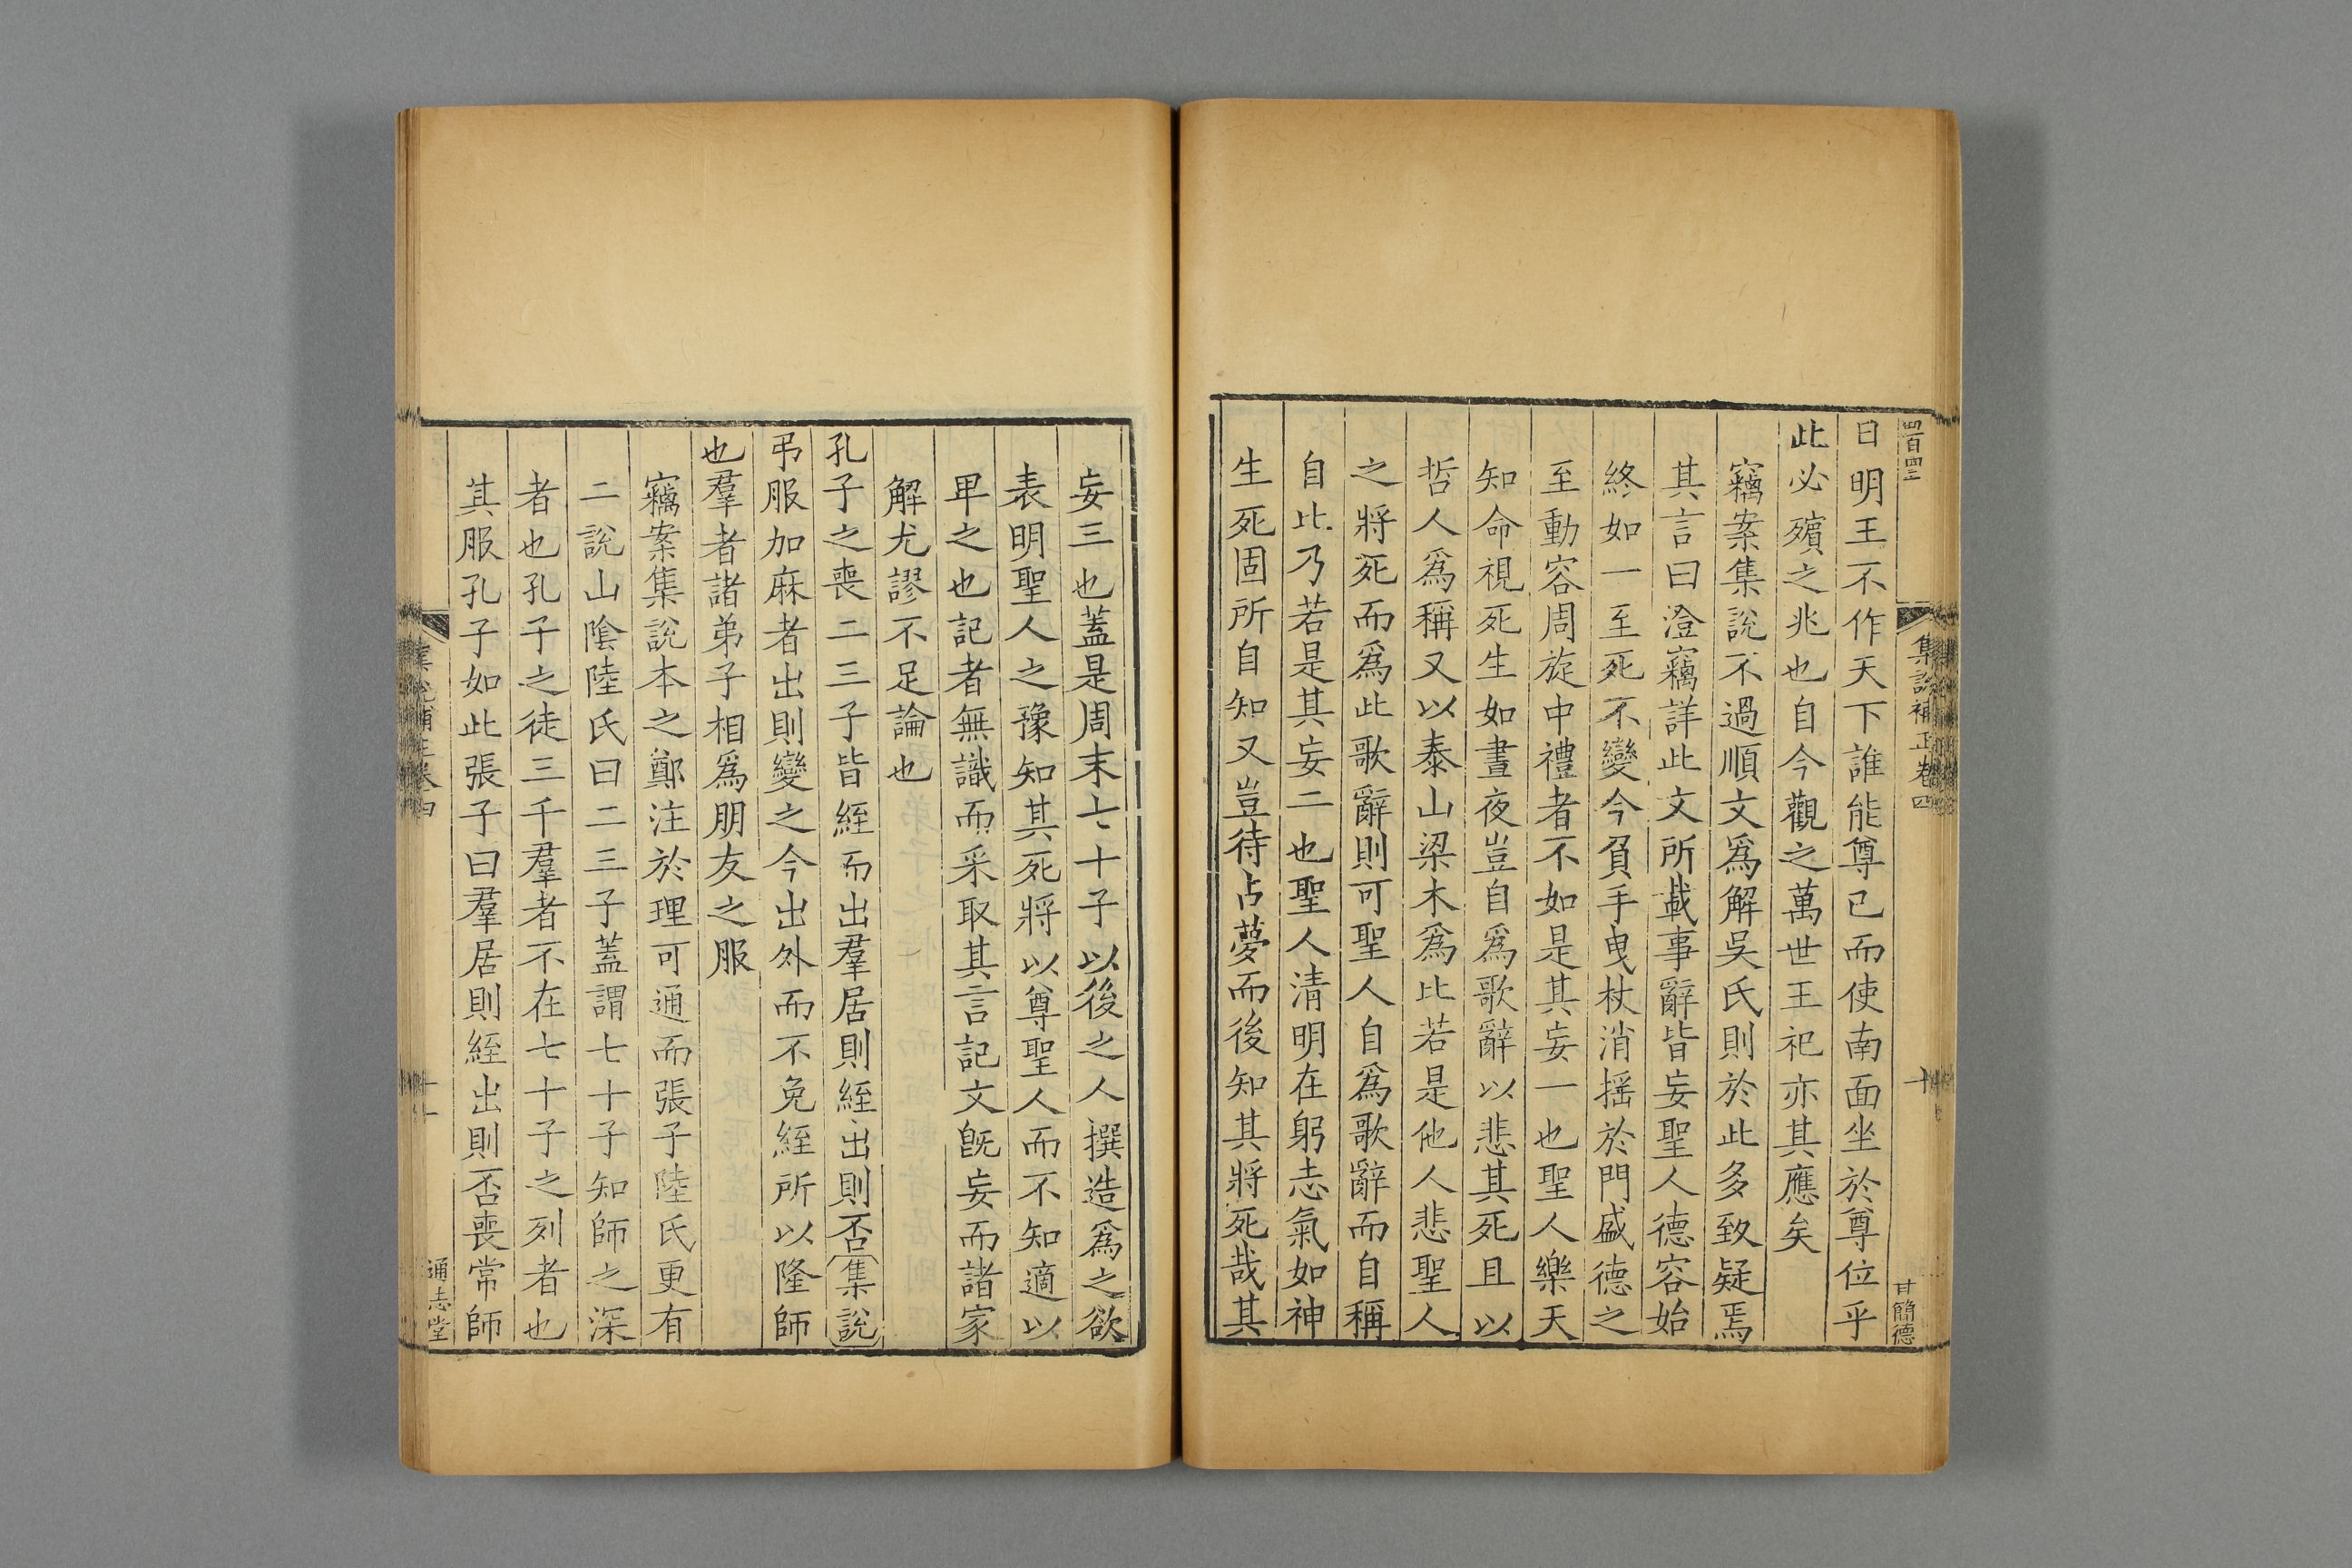 四百四三
集說補正卷四
十
甘簡德
曰明王不作天下誰能尊已而使南面坐於尊位乎
此必殯之兆也自今觀之萬世王祀亦其應矣
竊案集說不過順文爲解吳氏則於此多致疑焉
其言曰澄竊詳此文所載事辭皆妄聖人德容始
終如一至死不變今負手曳杖消揺於門盛德之
至動容周旋中禮者不如是其妄一也聖人樂天
知命視死生如晝夜豈自爲歌辭以悲其死且以
哲人爲稱又以泰山梁木爲比若是他人悲聖人
之將死而爲此歌辭則可聖人自爲歌辭而自稱
自此乃若是其妄二也聖人清明在躬志氣如神
生死固所自知又豈待占夢而後知其將死哉其
妄三也蓋是周末七十子以後之人撰造爲之欲
表明聖人之豫知其死將以尊聖人而不知適以
甲之也記者無識而采取其言記文旣妄而諸家
解尤謬不足論也
孔子之喪二三子皆絰而出羣居則絰出則否集說
弔服加麻者出則變之今出外而不免絰所以隆師
也羣者諸弟子相爲朋友之服
竊案集說本之鄭注於理可通而張子陸氏更有
二說山隂陸氏曰二三子蓋謂七十子知師之深
者也孔子之徒三千羣者不在七十子之列者也
其服孔子如此張子曰羣居則絰出則否喪常師
集說補正卷四
十一
通志堂